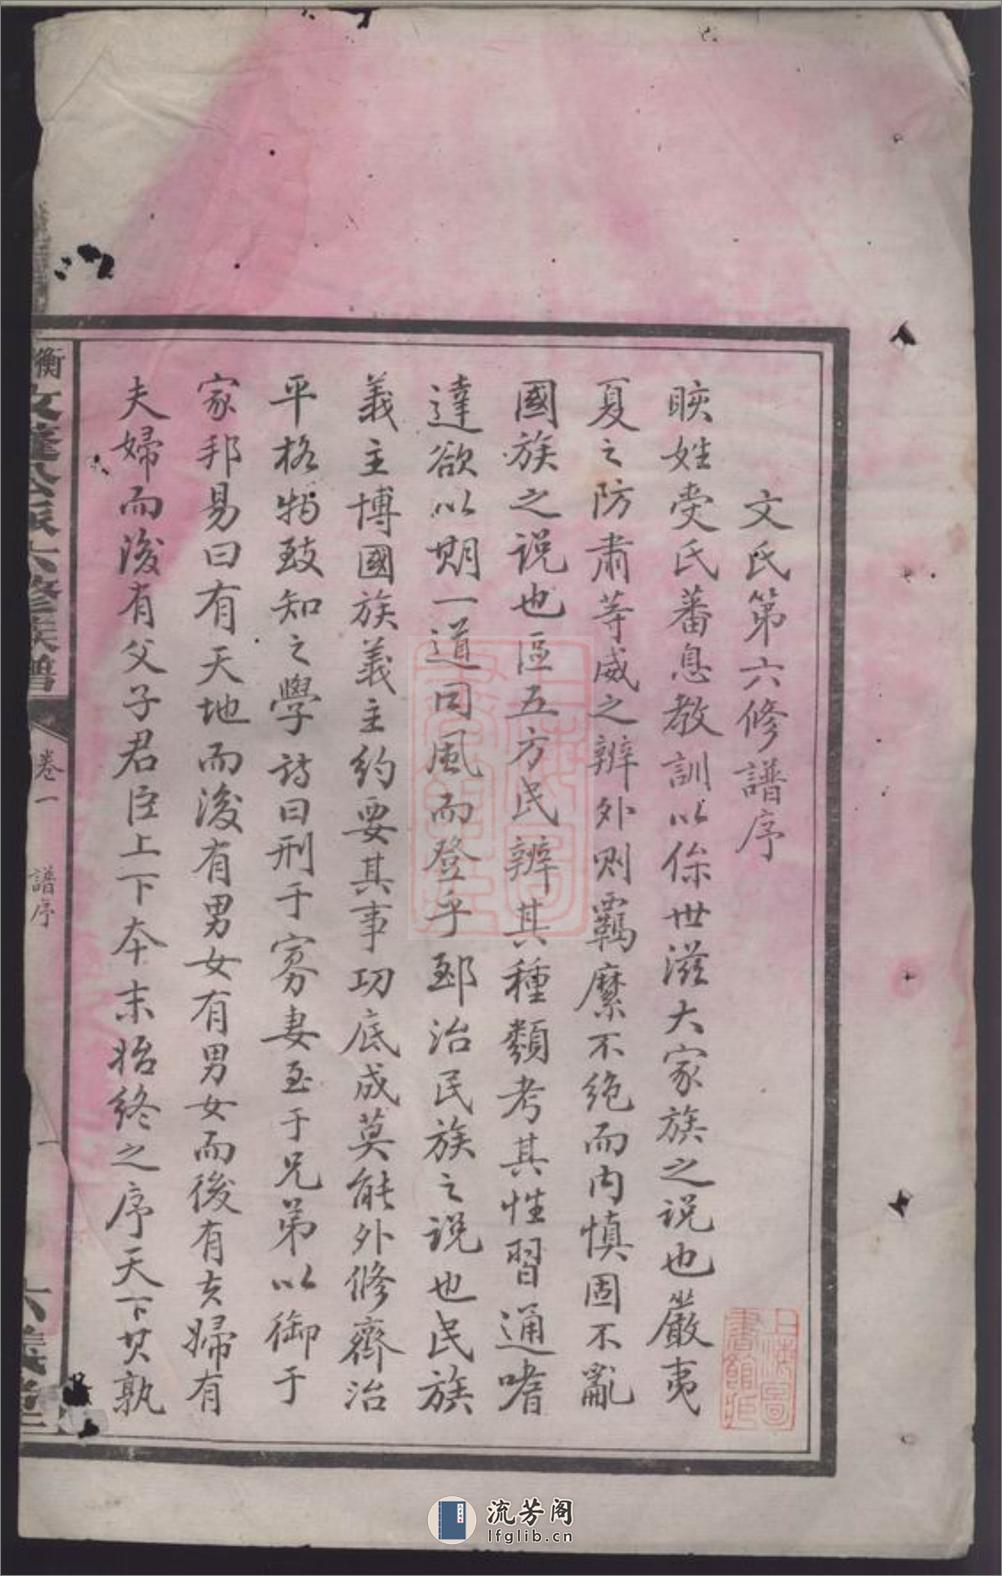 文氏第六修譜序
賧姓受氏蕃息教訓以保世滋大家族之说也嚴夷
夏之防肅等威之辨外则羈縻不绝而内慎固不亂
國族之说也區五方民辨其種類考其性習通嗜
達欲以期一道同風而登乎郅治民族之说也民族
義主博國族義主約要其事功底成莫能外修齊治
平格物致知之學詩曰刑于寡妻至于兄弟以御于
家邦易曰有天地而後有男女有男女而後有夫婦有
夫婦而後有父子君臣上下本末始终之序天下其孰
衡
六修族譜
卷一
譜序
一
六義堂
上海圖書館藏
流芳阁
lfglib.cn